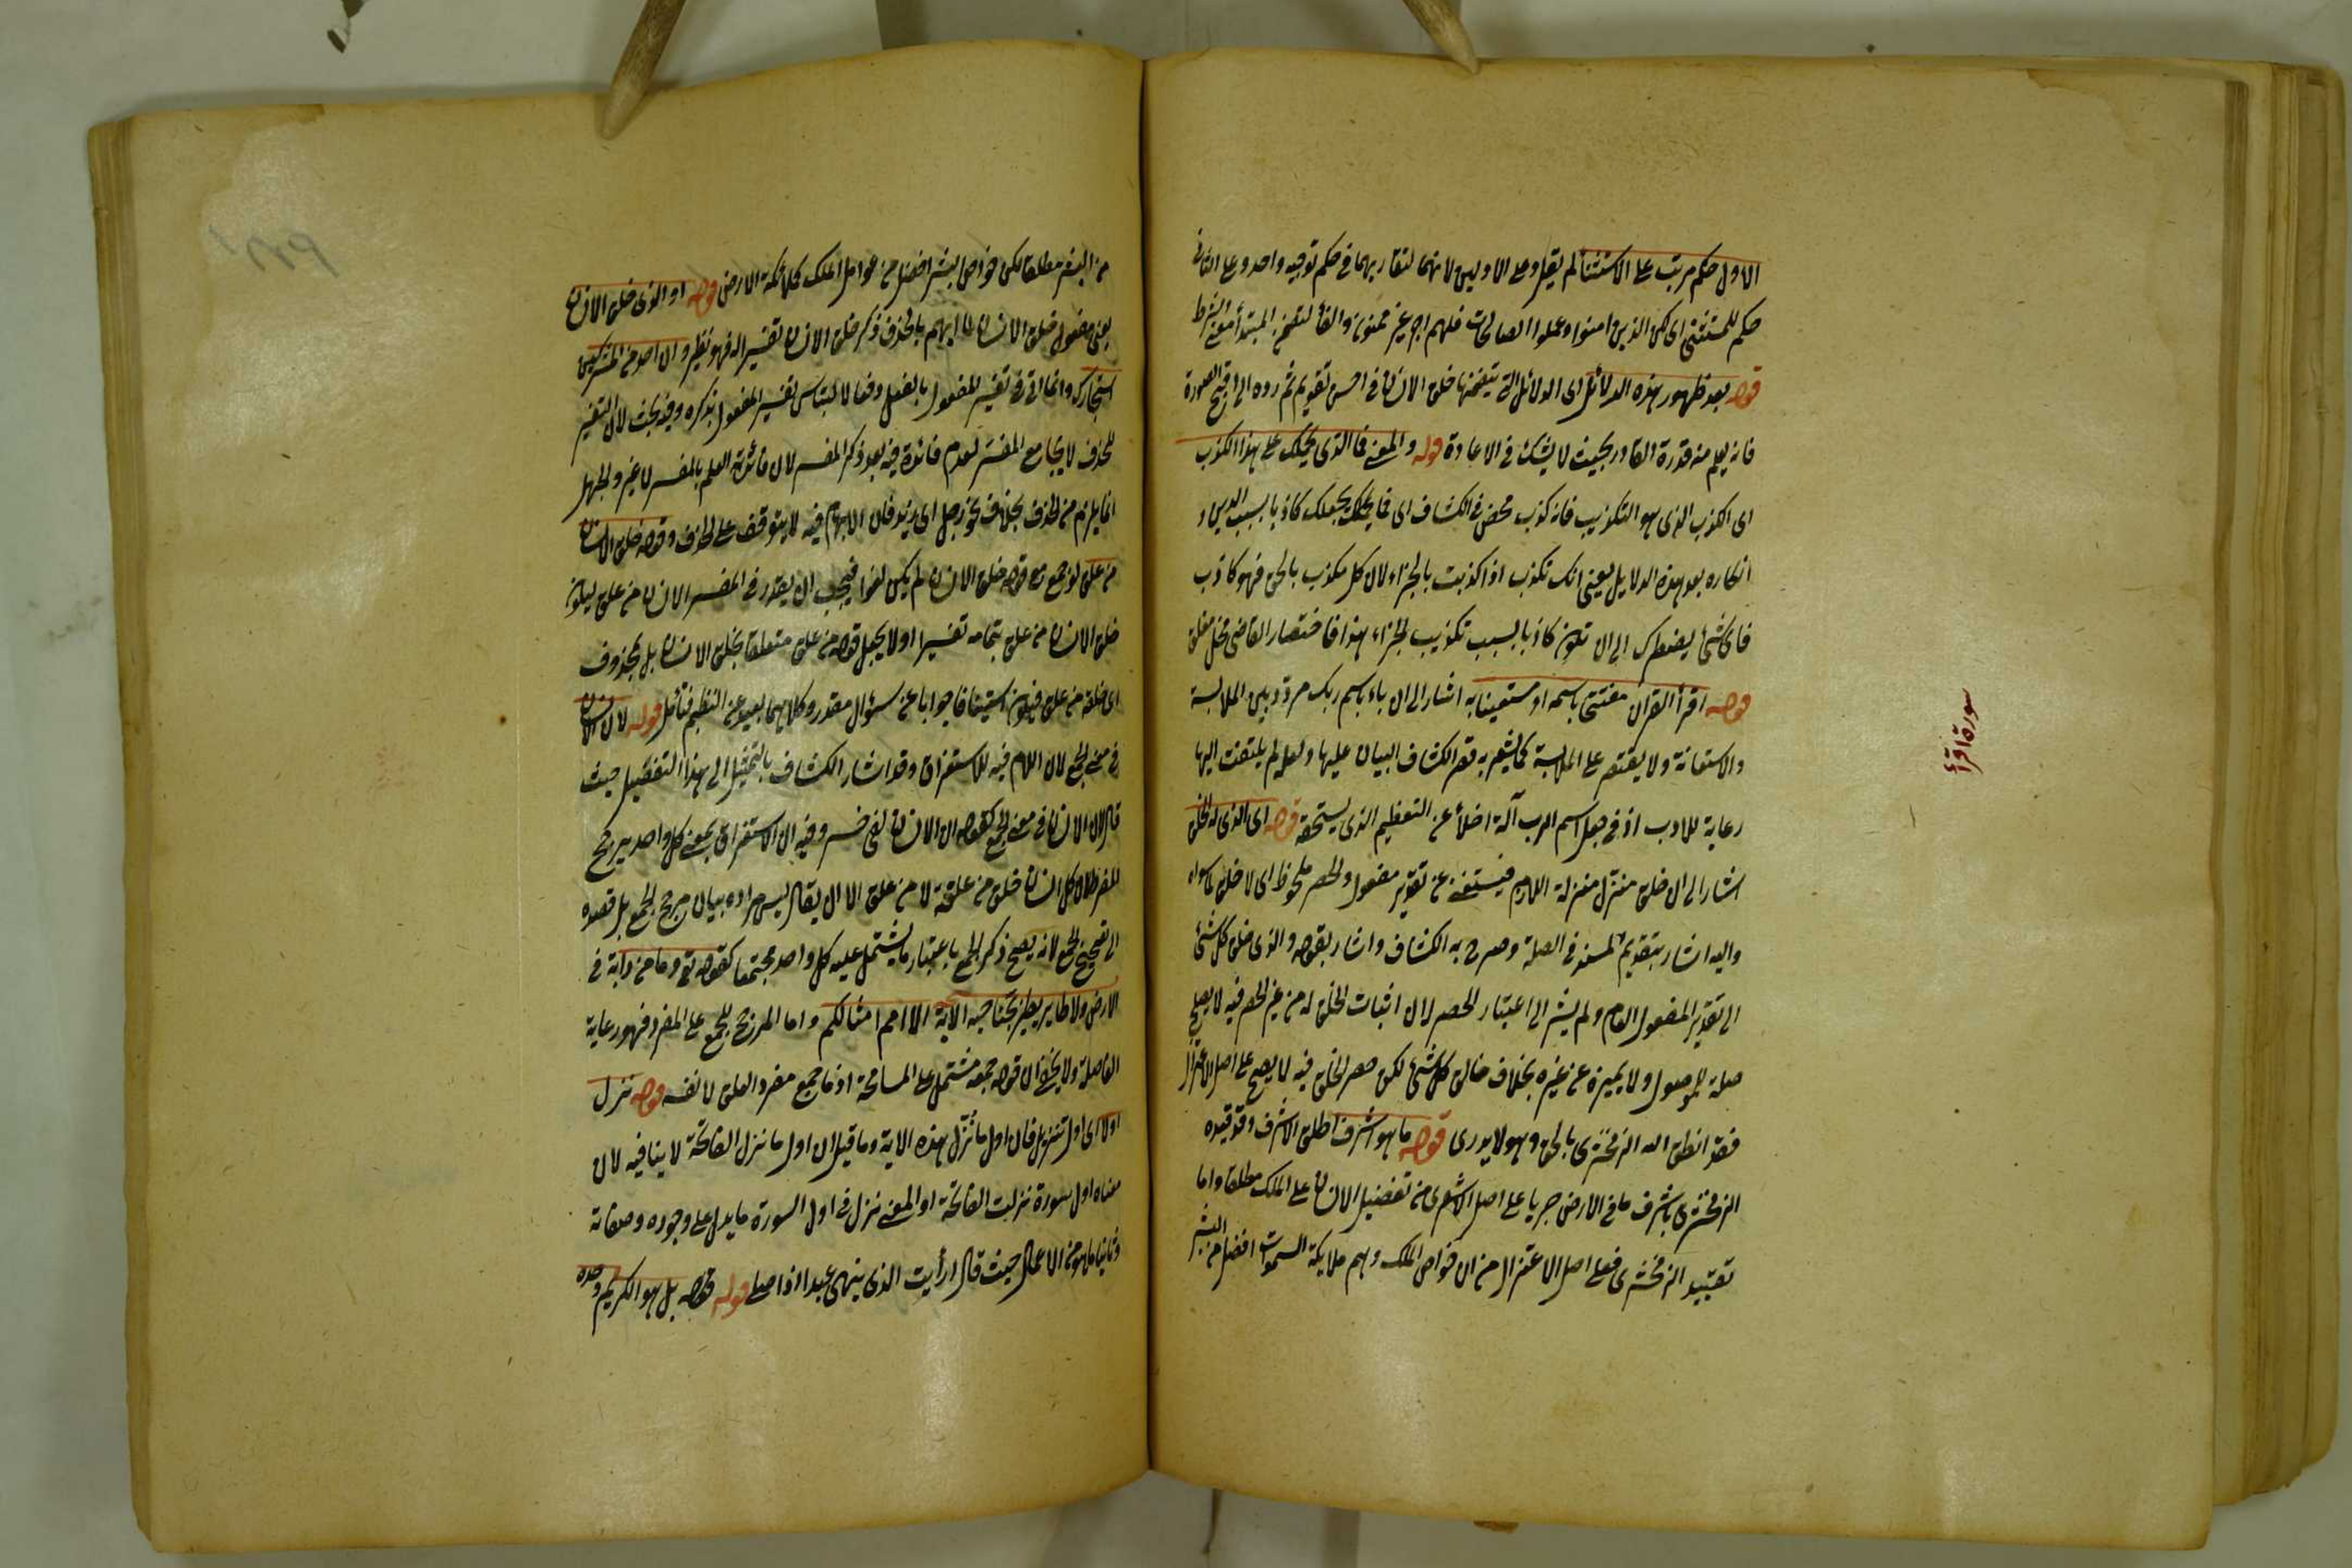 الاول حكم مرتب على الاستثناء لم يقل وعلى الاولين لانهما لتقاربهما في حكم توجيه واحد وعلى الثاني
حكم للمستثنى اى لكن الذين امنوا وعملوا الصالحات فلهم اجر غير ممنون والفاء لتضمن المبتدأ معنى الشرط
قوله بعد ظهور هذه الدلائل اى الدلائل التي يتضمنها خلق الانسان في احسن تقويم ثم رده الى اقبح الصورة
فانه يعلم منه قدرة القادر بحيث لا يشك في الاعادة قوله والمعنى فما الذي يحملك على هذا الكذب
اى الكذب الذي هو التكذيب فانه كذب محض في الكشاف اى فما يحملك يجعلك كاذبا بسبب الدين و
انكاره بعد هذه الدلايل يعني انك تكذب اذا كذبت بالجزاء لان كل مكذب بالحق فهو كاذب
فاى شئ يضطرك الى ان تكون كاذبا بسبب تكذيب الجزاء هذا فاختصار القاضي مخل مغلق
سورة اقرأ
قوله اقرأ القران مفتتحا باسمه او مستعينا به اشار الى ان باء باسم ربك مردد بين الملابسة
والاستعانة ولا يقتصر على الملابسة كما يشعر به قصر الكشاف البيان عليها ولعله لم يلتفت اليها
رعاية للادب اذ في جعل اسم الرب آلة اخلالا عن التعظيم الذي يستحقه قوله اى الذي له الخلق
اشار الى ان خلق منزل منزلة اللازم فيستغنى عن تقدير مفعول والحصر ملحوظ اى لا خلق لما سواه
واليه اشار بتقديم المسند في الصلة وصرح به الكشاف واشار بقوله والذي خلق كل شئ
الى تقدير المفعول العام ولم يشر الى اعتبار الحصر لان اثبات الخلق له من غير الحصر فيه لا يصلح
صلة للموصول ولا يميزه عن غيره بخلاف خالق كل شئ لكن حصر الخلق فيه لا يصح على اصل الاعتزال
فقد انطق الله الزمخشري بالحق وهو لا يدري قوله ما هو اشرف اطلق الاشرف وقد قيده
الزمخشري باشرف ما في الارض جريا على اصل الاشعري من تفضيل الانسان على الملك مطلقا واما
تقييد الزمخشري فعلى اصل الاعتزال من ان خواص الملك وهم ملايكة السموات افضل من البشر
من البشر مطلقا لكن خواص البشر افضل من عوامل الملك كملائكة الارض قوله او الذي خلق الانسان
يعني مفعول خلق الانسان لما ابهم بالحذف ذكر خلق الانسان تفسيرا له فهو نظير وان احد من المشركين
استجارك وانما اتى في تفسير المفعول بالفعل دفعا لالتباس تفسير المفعول بذكره وفيه بحث لان التفسير
للحذف لا يجامع المفسر لعدم فائدة فيه بعد ذكر المفسر لان فائدته العلم بالمفسر لا غير والجهل
انما يلزم من الحذف بخلاف نحو رجل اى زيد فان الابهام فيه لا يتوقف على الحذف وقوله خلق الانسان
من علق لو جمع مع قوله خلق الانسان لم يكن لغوا فيجب ان يقدر في المفسر الانسان من علق ليكون
خلق الانسان من علق بتمامه تفسيرا او لا يجعل قوله من علق متعلقا بخلق الانسان بل بمحذوف
اى خلقه من علق فيكون استينافا جوابا عن سؤال مقدر وكلاهما بعيد عن النظم فتأمل قوله لان الانسان
في معنى الجمع لان اللام فيه للاستغراق وقد اشار الكشاف بالتمثيل الى هذا التفصيل حيث
قال لان الانسان في معنى الجمع كقوله ان الانسان لفي خسر وفيه ان الاستغراق بمعنى كل واحد يرجح
المفرد لان كل انسان خلق من علقة لا من علق الا ان يقال ليس مراده بيان مرجح الجمع بل قصده
الى تصحيح الجمع لانه يصح ذكر الجمع باعتبار ما يشتمل عليه كل واحد مجتمعا كقوله تع وما من دابة في
الارض ولا طاير يطير بجناحيه الاية الا امم امثالكم واما المرجح للجمع على المفرد فهو رعاية
الفاصلة ولا يخفى ان قوله جمعه مشتمل على المسامحة اذ ما جمع مفرد العلق لا نفسه قوله نزل
اولا اى اول تنزيل فان اول ما نزل هذه الاية وما قيل ان اول ما نزل الفاتحة لا ينافيه لان
معناه اول سورة نزلت الفاتحة او المعنى نزل في اول السورة ما يدل على وجوده وصفاته
وثانيا ما هو من الاعمال حيث قال ارأيت الذي ينهى عبدا اذا صلى قوله قوله بل هو الكريم وحده